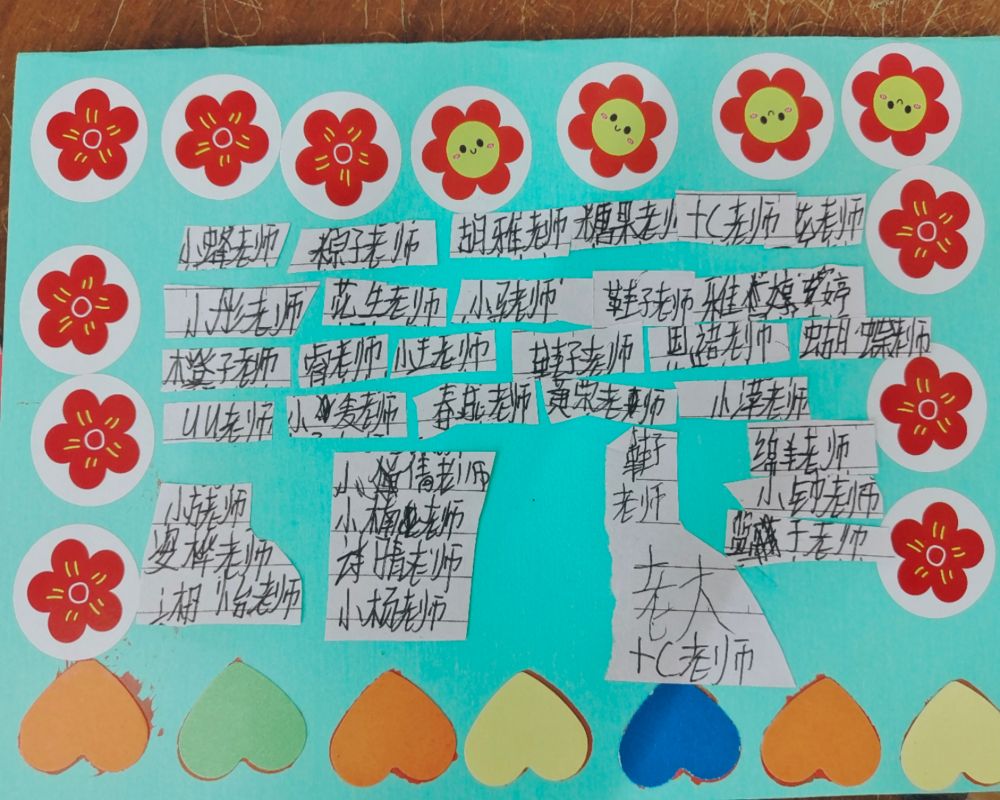 小蜂老师 粽子老师 胡雅老师 糖果老师 十C老师 花老师
小彤老师 花生老师 小军老师 鞋子老师 雅 婷
橙子老师 宵老师 小土老师 鞋子老师 思语老师 蝴蝶老师
UU老师 小麦老师 春 老师 黄荣老师 小洋老师
小 倩老师
小楠老师
诗晴老师
小杨老师
小 老师
安桦老师
湘怡老师
鞋子
老师
老大
十C老师
绵羊老师
小 老师
蓝 于老师